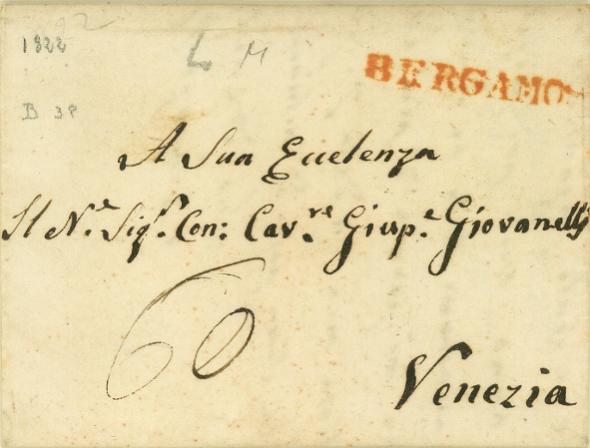 1822
L M
BERGAMO
B 38
A Sua Eccelenza
Il N.e Sig.r Con: Cav.re Giusp.e Giovanelli
60
Venezia